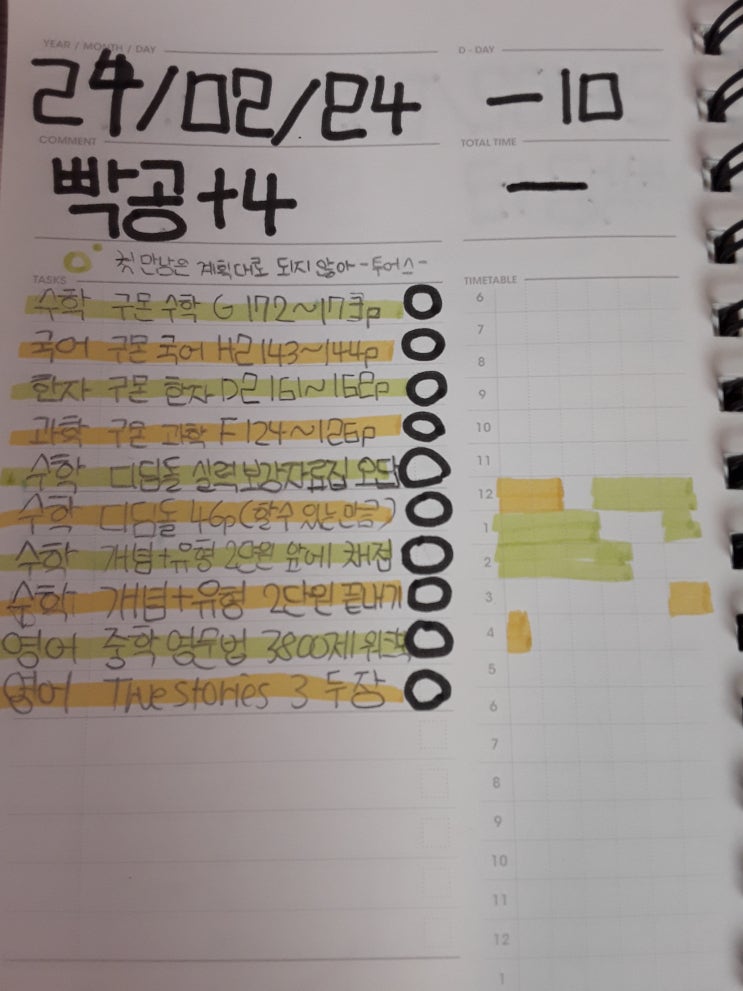 YEAR / MONTH / DAY
24/02/24
D - DAY
-10
COMMENT
빡공+4
TOTAL TIME
-
첫 만남은 계획대로 되지 않아 -투어스-
TASKS
수학 구몬 수학 G 172~173p
국어 구몬 국어 H2 143~144p
한자 구몬 한자 D2 161~162p
과학 구몬 과학 F 124~126p
수학 디딤돌 실력보강자료집 오답
수학 디딤돌 46p(할수 있는 만큼)
수학 개념+유형 2단원 앞에 채점
수학 개념+유형 2단원 끝내기
영어 중학영문법 3800제 워크북
영어 True stories 3 두장
TIMETABLE
6
7
8
9
10
11
12
1
2
3
4
5
6
7
8
9
10
11
12
1